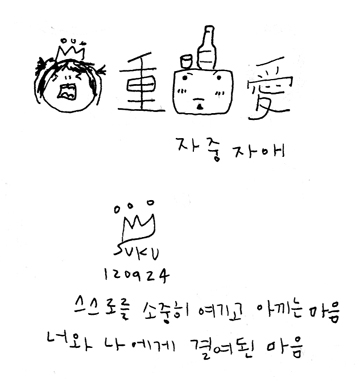 重 愛
자중자애
SUKU
120924
스스로를 소중히 여기고 아끼는 마음
너와 나에게 결여된 마음